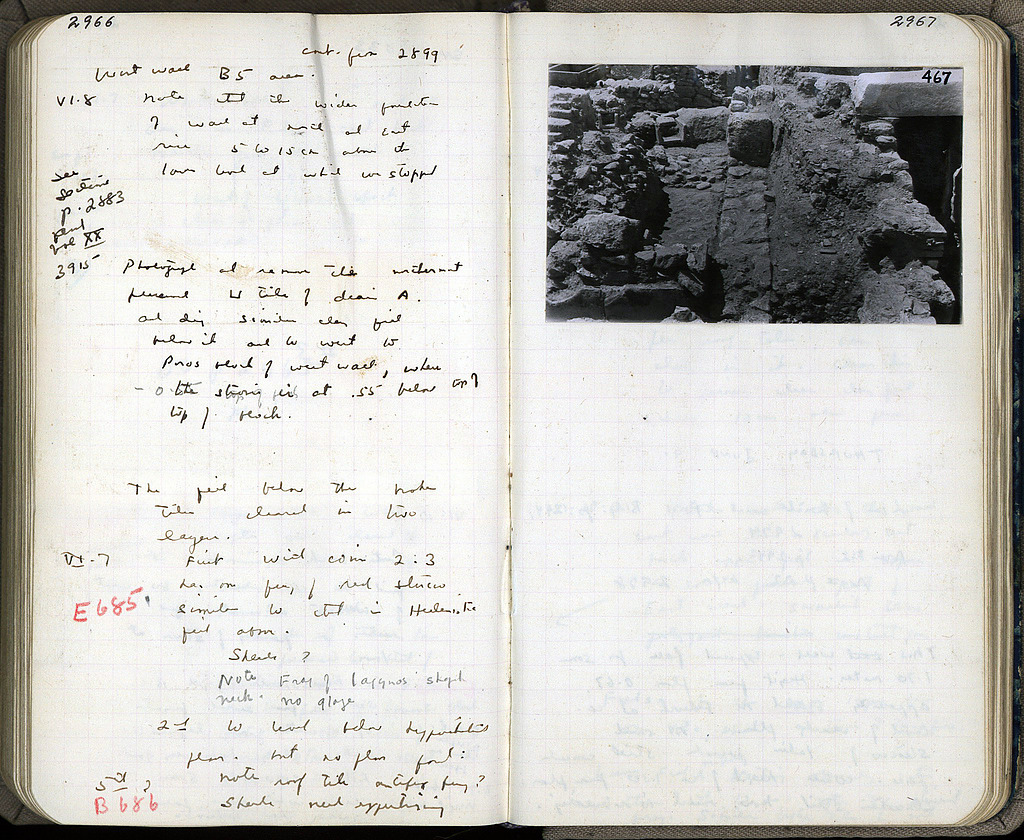 2966
cont. from 2899
West wall B5 area.
VI.8 Note that the wider foundation
of wall at north and east
rise 5 to 15 cm above the
lower level at which we stopped
see
section
p. 2883
vol XX
3915 Photograph and remove tiles northernmost
preserved W tile of drain A.
and dig similar clay fill
below it and to west to
Poros block of west wall, where
at .55 below top of
top of block.
The fill below the broken
tiles cleared in two
layers.
VI.7 First with coin 2:3
has one frag of red stucco
E685 similar to that in Hellenistic
fill above.
Sherds ?
Note Frag of lagynos steph
neck. no glaze
2nd to level below hypothetical
floor. but no floor found:
5th ? note roof tile antefix frag?
B 686 Sherds need
2967
467